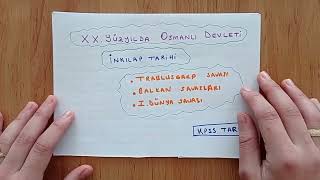 XX. YÜZYILDA OSMANLI DEVLETİ
İNKILAP TARİHİ
• TRABLUSGARP SAVAŞI
• BALKAN SAVAŞLARI
• I. DÜNYA SAVAŞI
KPSS TAR